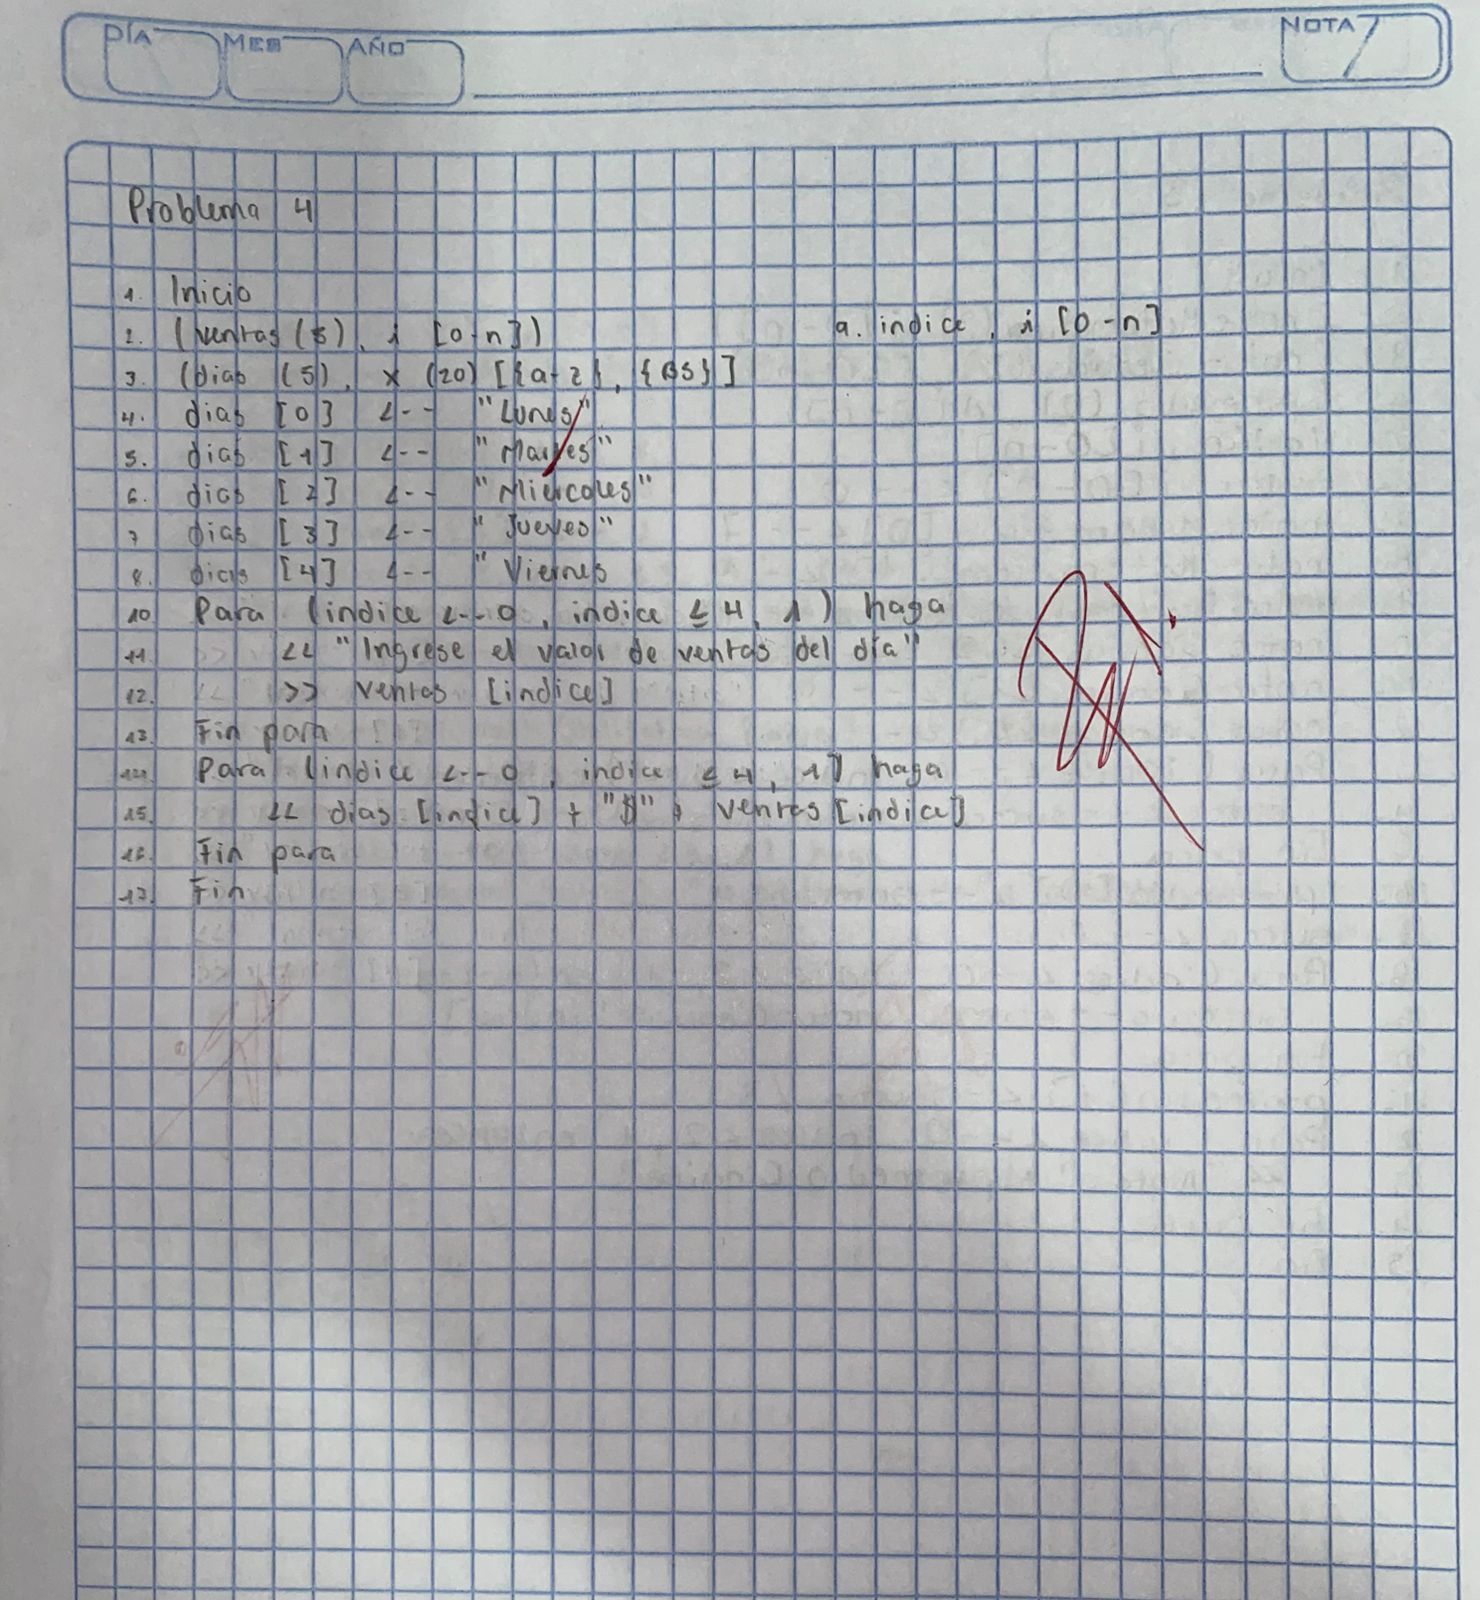 DÍA MES AÑO NOTA
Problema 4
1. Inicio
2. (ventas (5), i [0-n]) a. indice, i [0-n]
3. (dias (5), x (20) [{a-z}, {BS}]
4. dias [0] <-- "Lunes"
5. dias [1] <-- "Martes"
6. dias [2] <-- "Miercoles"
7 dias [3] <-- "Jueves"
8. dias [4] <-- "Viernes
10 Para (indice <--0, indice ≤ 4, 1) haga
11. << "Ingrese el valor de ventas del día"
12. >> ventas [indice]
13. Fin para
14. Para (indice <--0, indice ≤ 4, 1) haga
15. << dias [indice] + "$" + ventas [indice]
16. Fin para
17. Fin